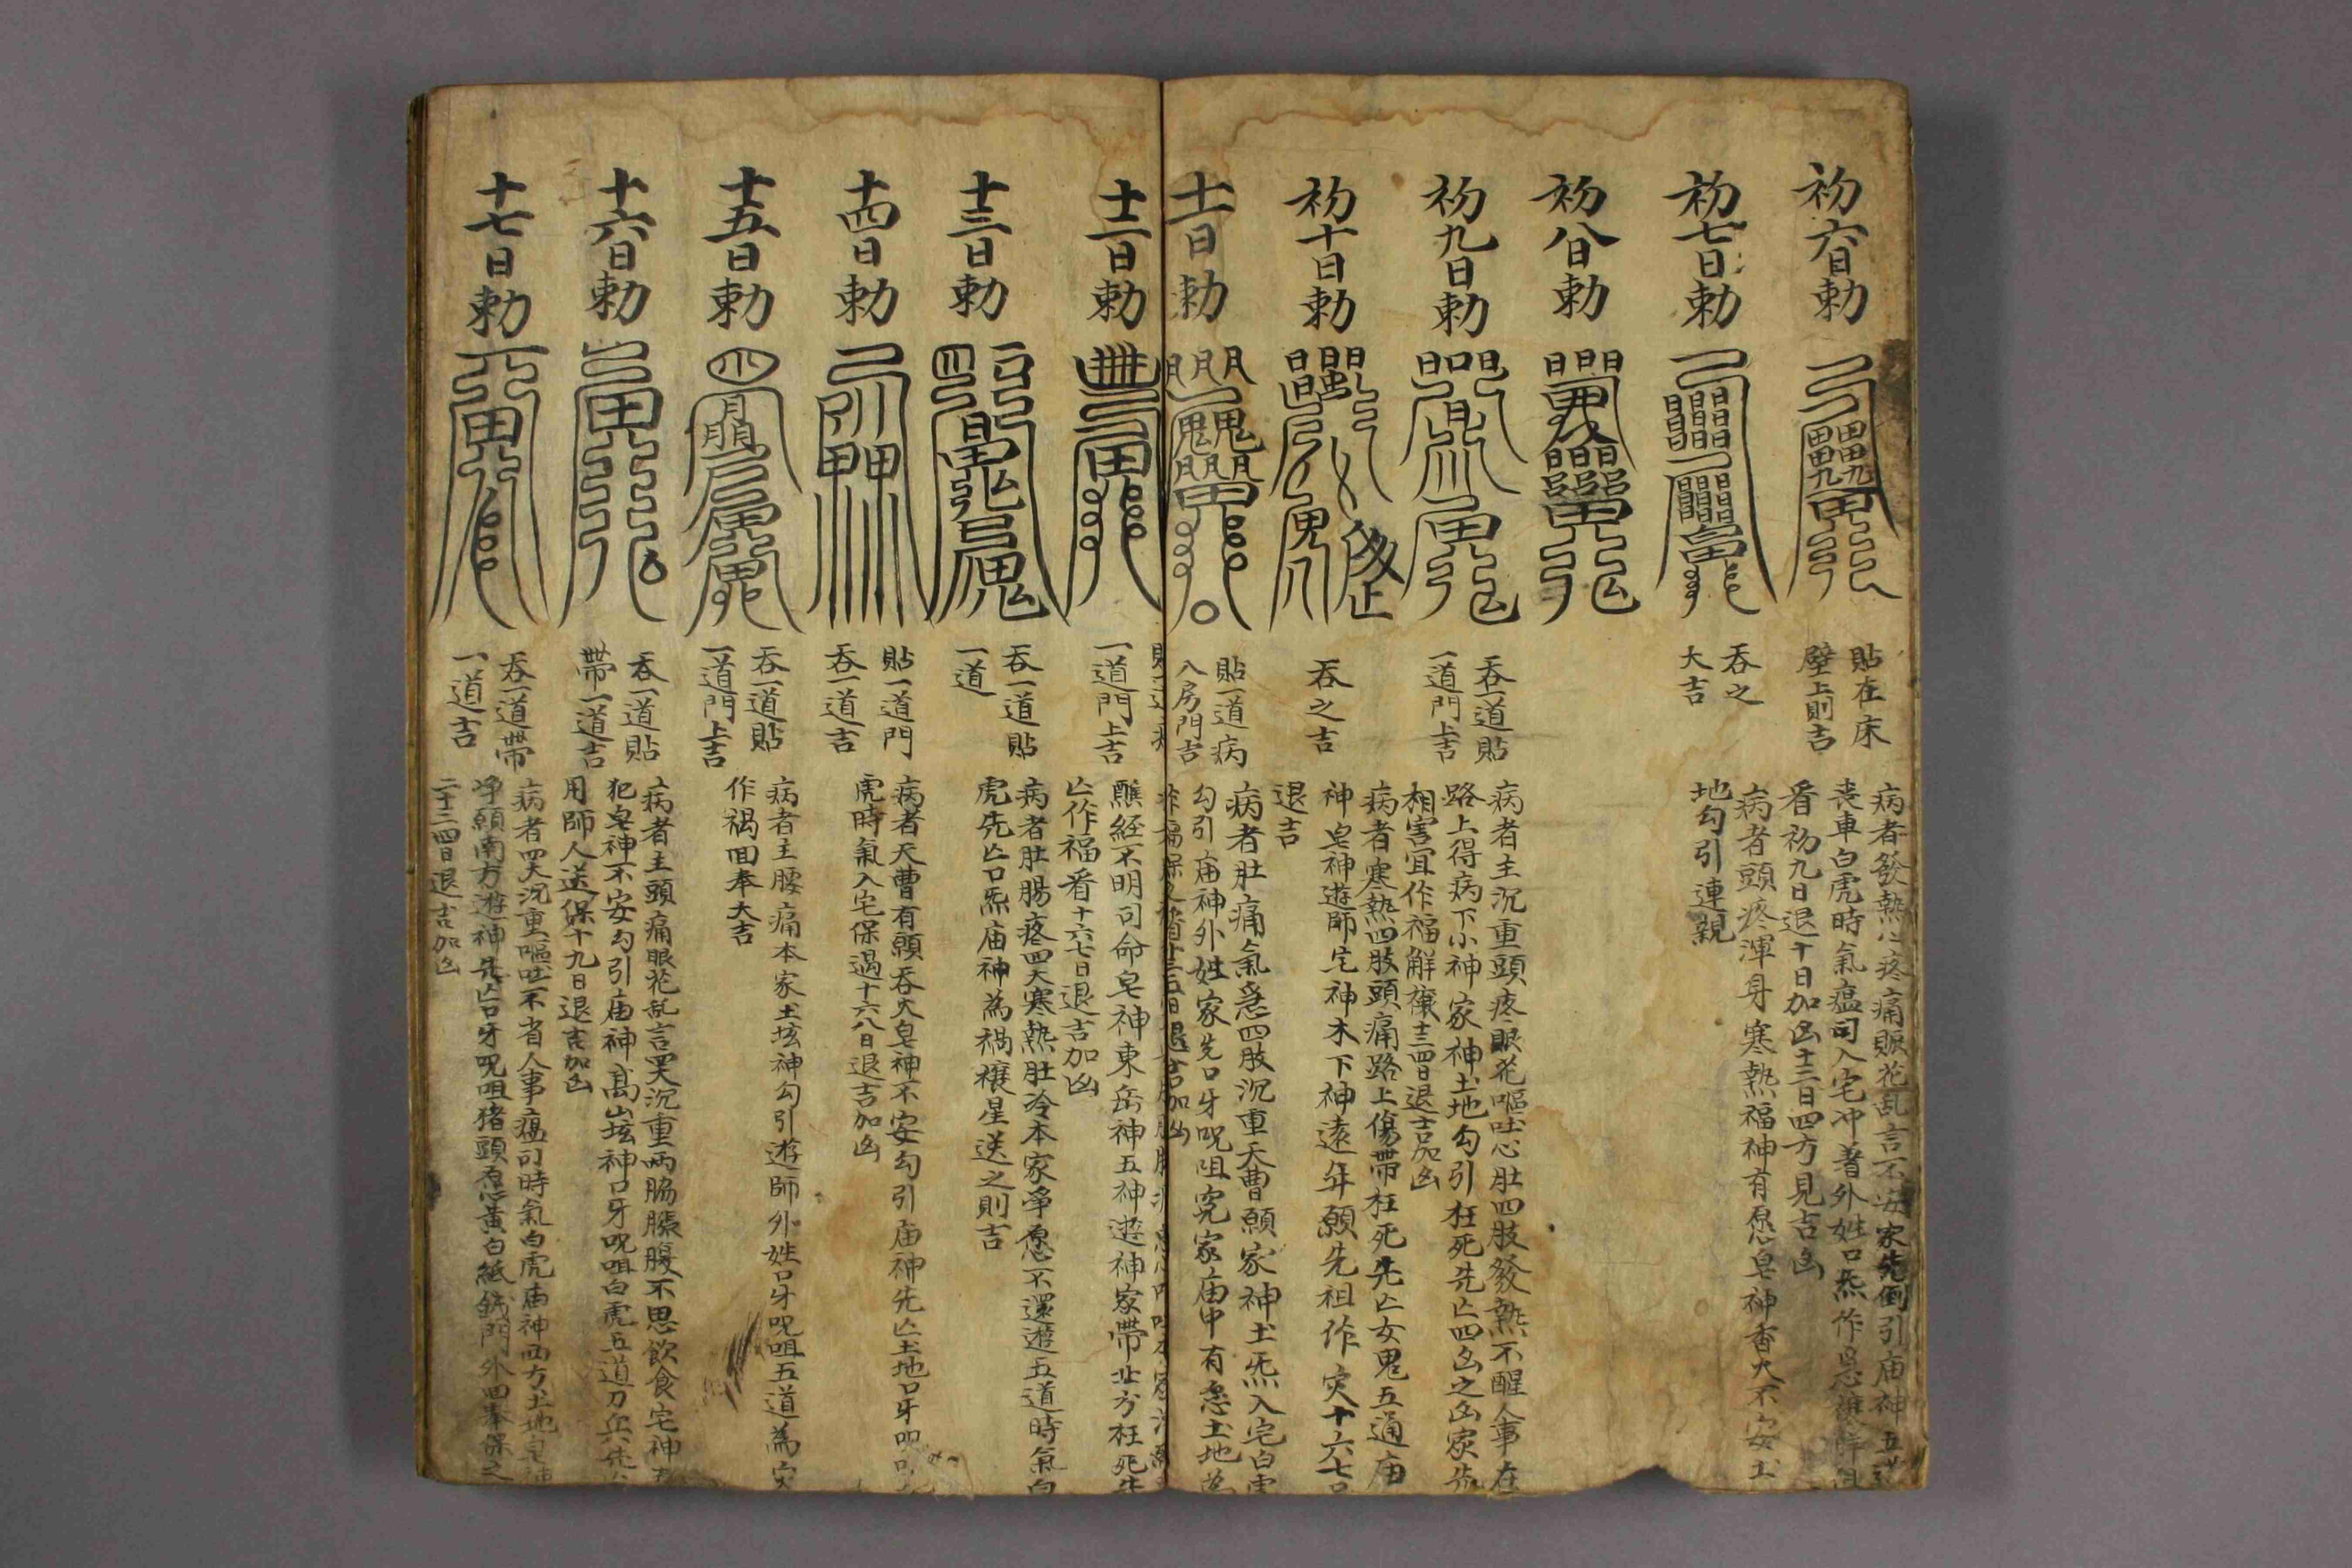 初六日勅
貼在床
壁上則吉
病者發熱心疼痛眼花乱言不安家先倒引庙神五道
丧車白虎時氣瘟司入宅冲著外姓口炁作
看初九日退十日加凶十三日四方見吉凶
初七日勅
吞之
大吉
病者頭疼渾身寒熱福神有愿皂神香火不安土
地勾引連親
初八日勅
初九日勅
吞一道貼
一道門上吉
病者主沉重頭疼眼花嘔吐心肚四肢發熱不醒人事在
路上得病下小神家神土地勾引枉死先亡四凶之凶家先
相害宜作福解禳十三四日退吉加凶
初十日勅
吞之吉
病者寒熱四肢頭痛路上傷帶枉死先亡女鬼五通庙
神皂神遊師宅神木下神遠年願先祖作灾十六七日
退吉
十一日勅
貼一道病
人房門吉
病者肚痛氣急四肢沉重天曹願家神土炁入宅白虎
勾引庙神外姓家先口牙呪咀究家庙中有愿土地為
十二日勅
一道門上吉
醮経不明司命皂神東岳神五神遊神家帶北方枉死先
亡作福看十六七日退吉加凶
十三日勅
吞一道貼
一道
病者肚腸疼四大寒熱肚冷本家爭愿不還遊五道時氣白
虎先亡口炁庙神為禍禳星送之則吉
十四日勅
貼一道門
吞一道吉
病者天曹有願吞大皂神不安勾引庙神先亡土地口牙呪
虎時氣入宅保過十六八日退吉加凶
十五日勅
吞一道貼
一道門上吉
病者主腰痛本家土垓神勾引遊師外姓口牙呪咀五道為灾
作禍回奉大吉
十六日勅
吞一道貼
帶一道吉
病者主頭痛眼花乱言四大沉重兩脇脹腹不思飲食宅神
犯皂神不安勾引庙神高山垓神口牙呪咀白虎五道刀兵先
用師人送保十九日退吉加凶
十七日勅
吞一道帶
一道吉
病者四大沉重嘔吐不省人事瘟司時氣白虎庙神西方土地皂神
淨願南方遊神先亡口牙呪咀猪頭愿黃白紙錢門外四奉保之
二十三四日退吉加凶